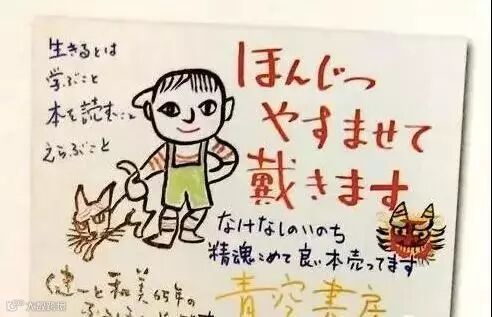 生きるとは
学ぶこと
本を読むこと
えらぶこと
ほんじつ
やすませて
戴きます
なけなしのいのち
精魂こめて良い本売ってます
健一と和美65年の
青空書房
大数跨境